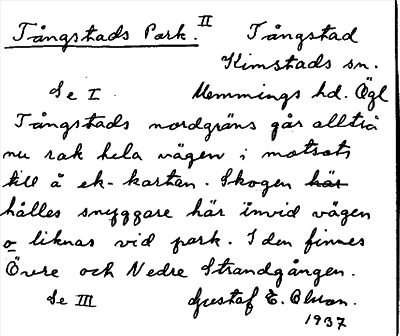 Tångstads Park. II Tångstad
Kimstads sn.
Se I. Memmings hd. Ögl
Tångstads nordgräns går alltså
nu rak hela vägen i motsats
till å ek-kartan. Skogen här
hålles snyggare här invid vägen
o liknas vid park. I den finnes
Övre och Nedre Strandgången.
Se III Gustaf E. Olsson.
1937